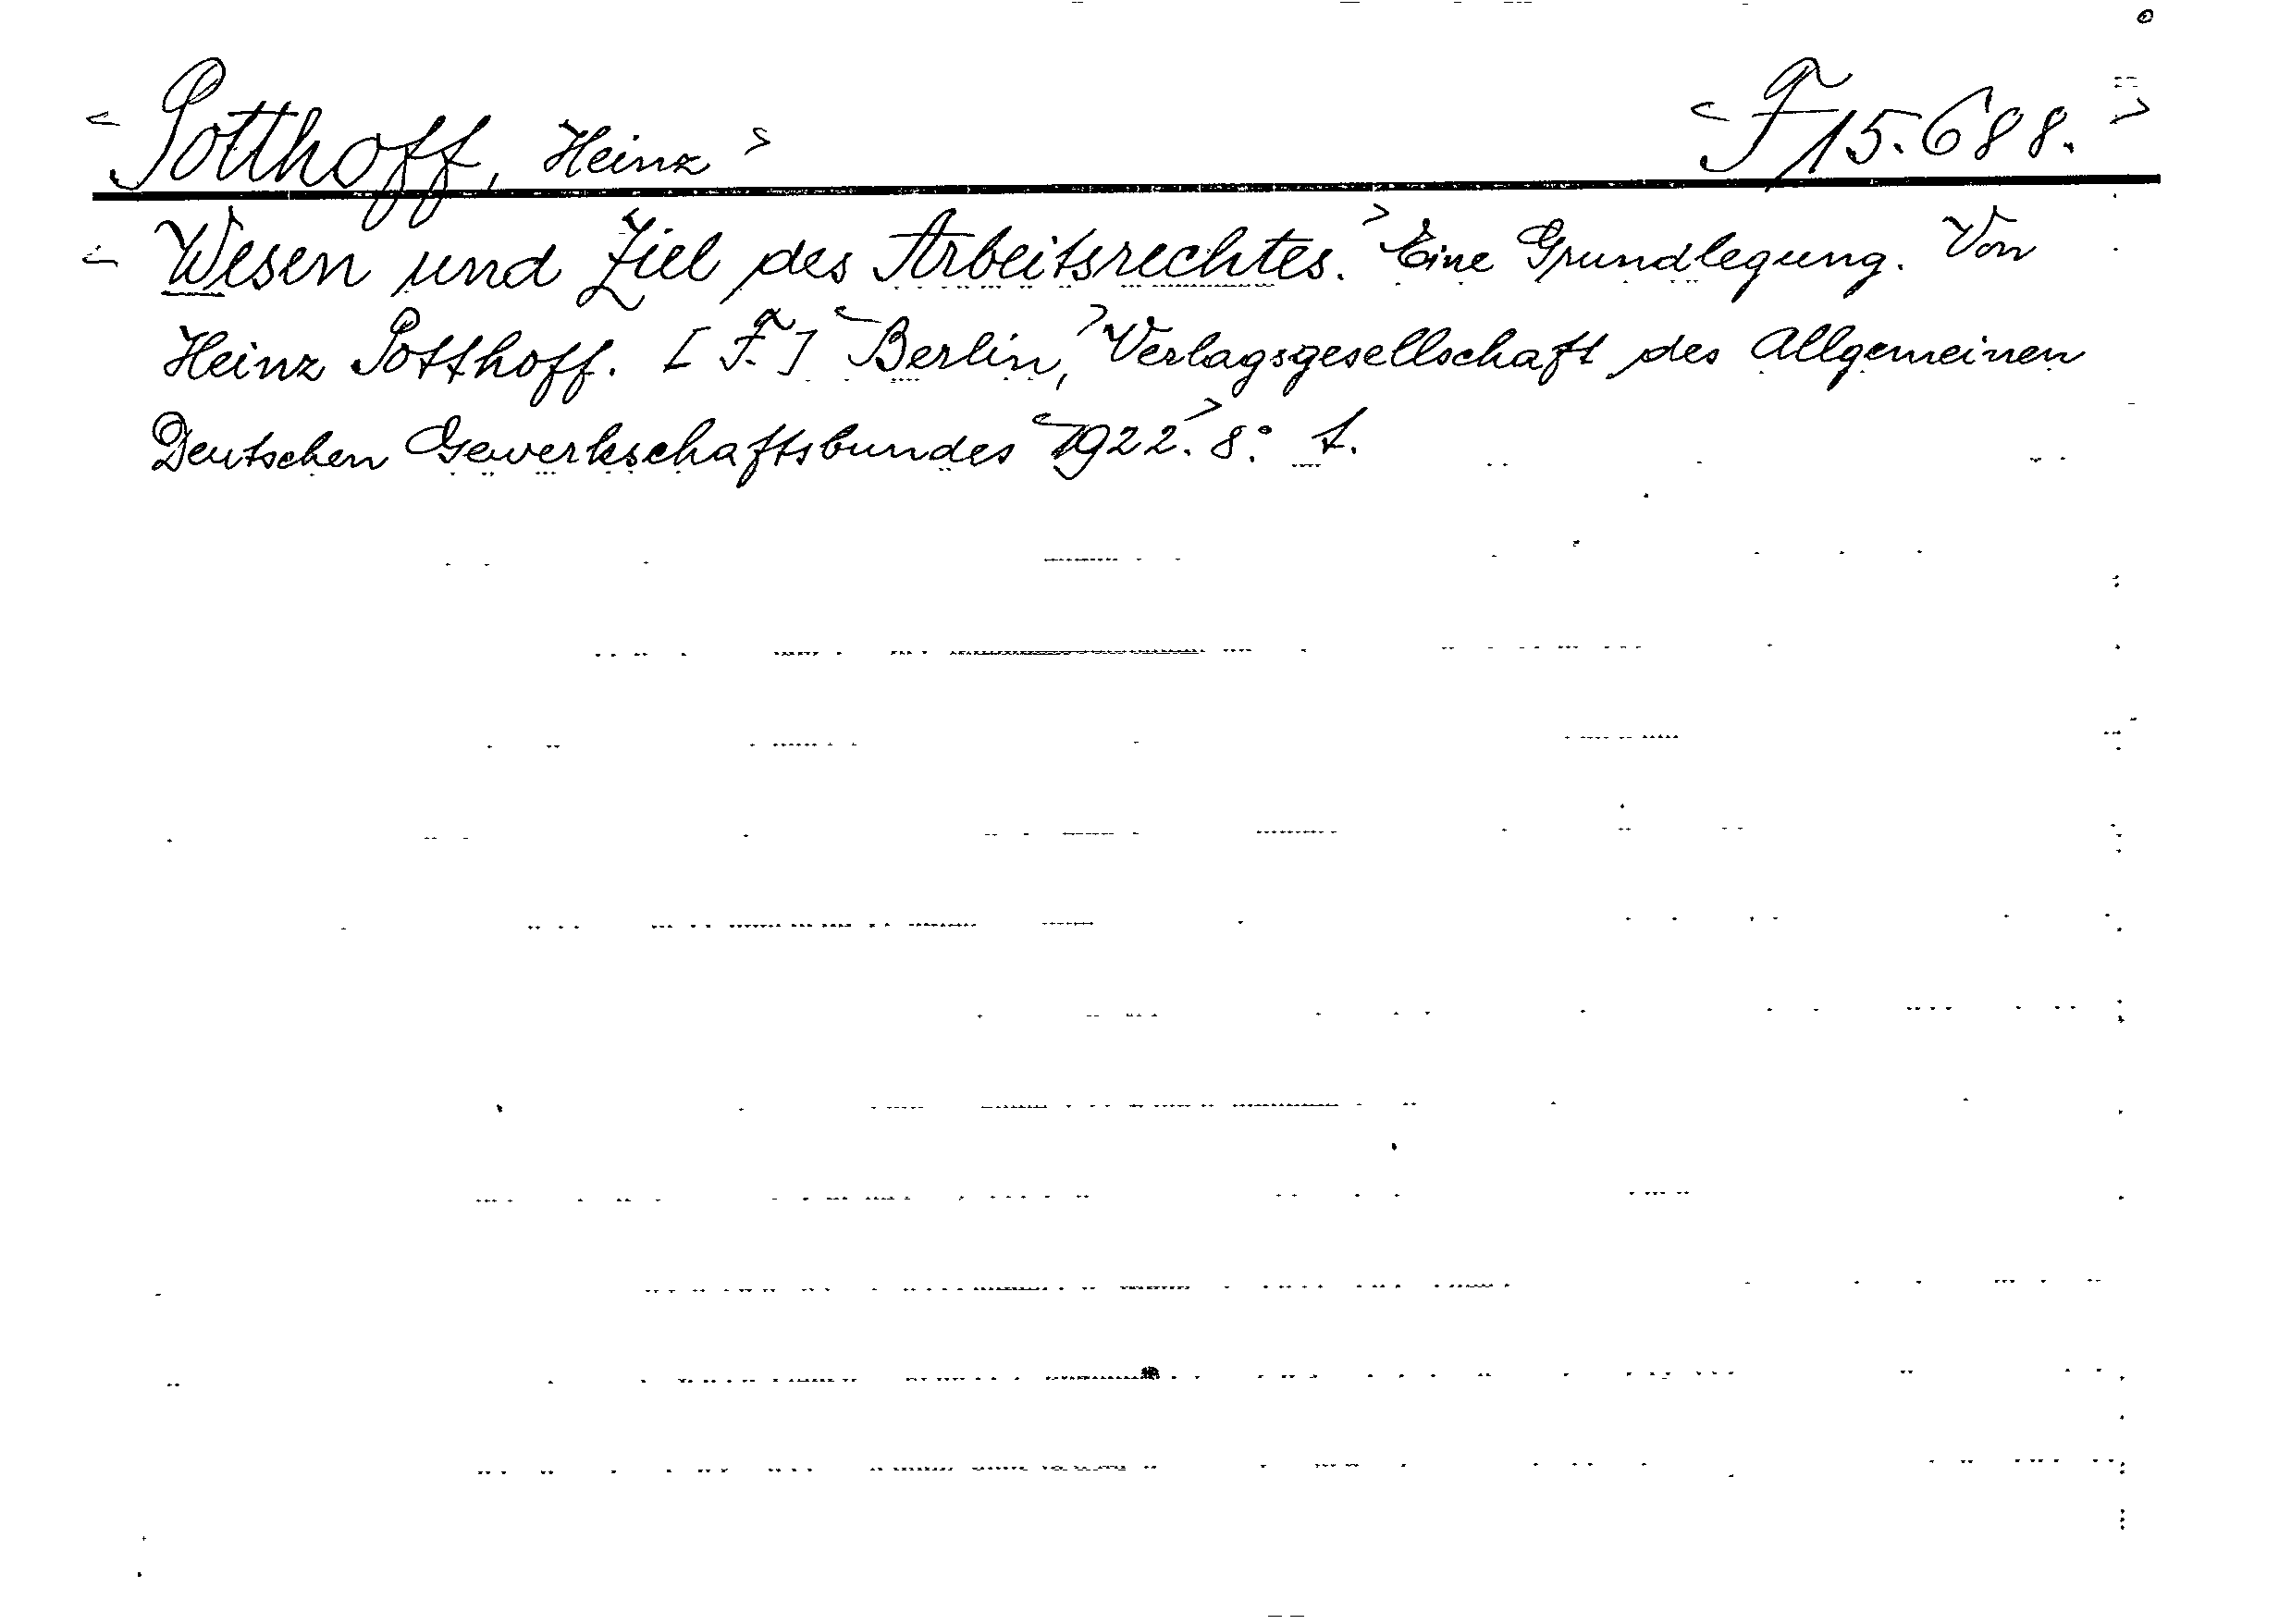 <Potthoff, Heinz> <F 15.688.>
<Wesen und Ziel des Arbeitsrechtes.> Eine Grundlegung. Von
Heinz Potthoff. [F.] <Berlin,> Verlagsgesellschaft des Allgemeinen
Deutschen Gewerkschaftsbundes <1922.> 8:°